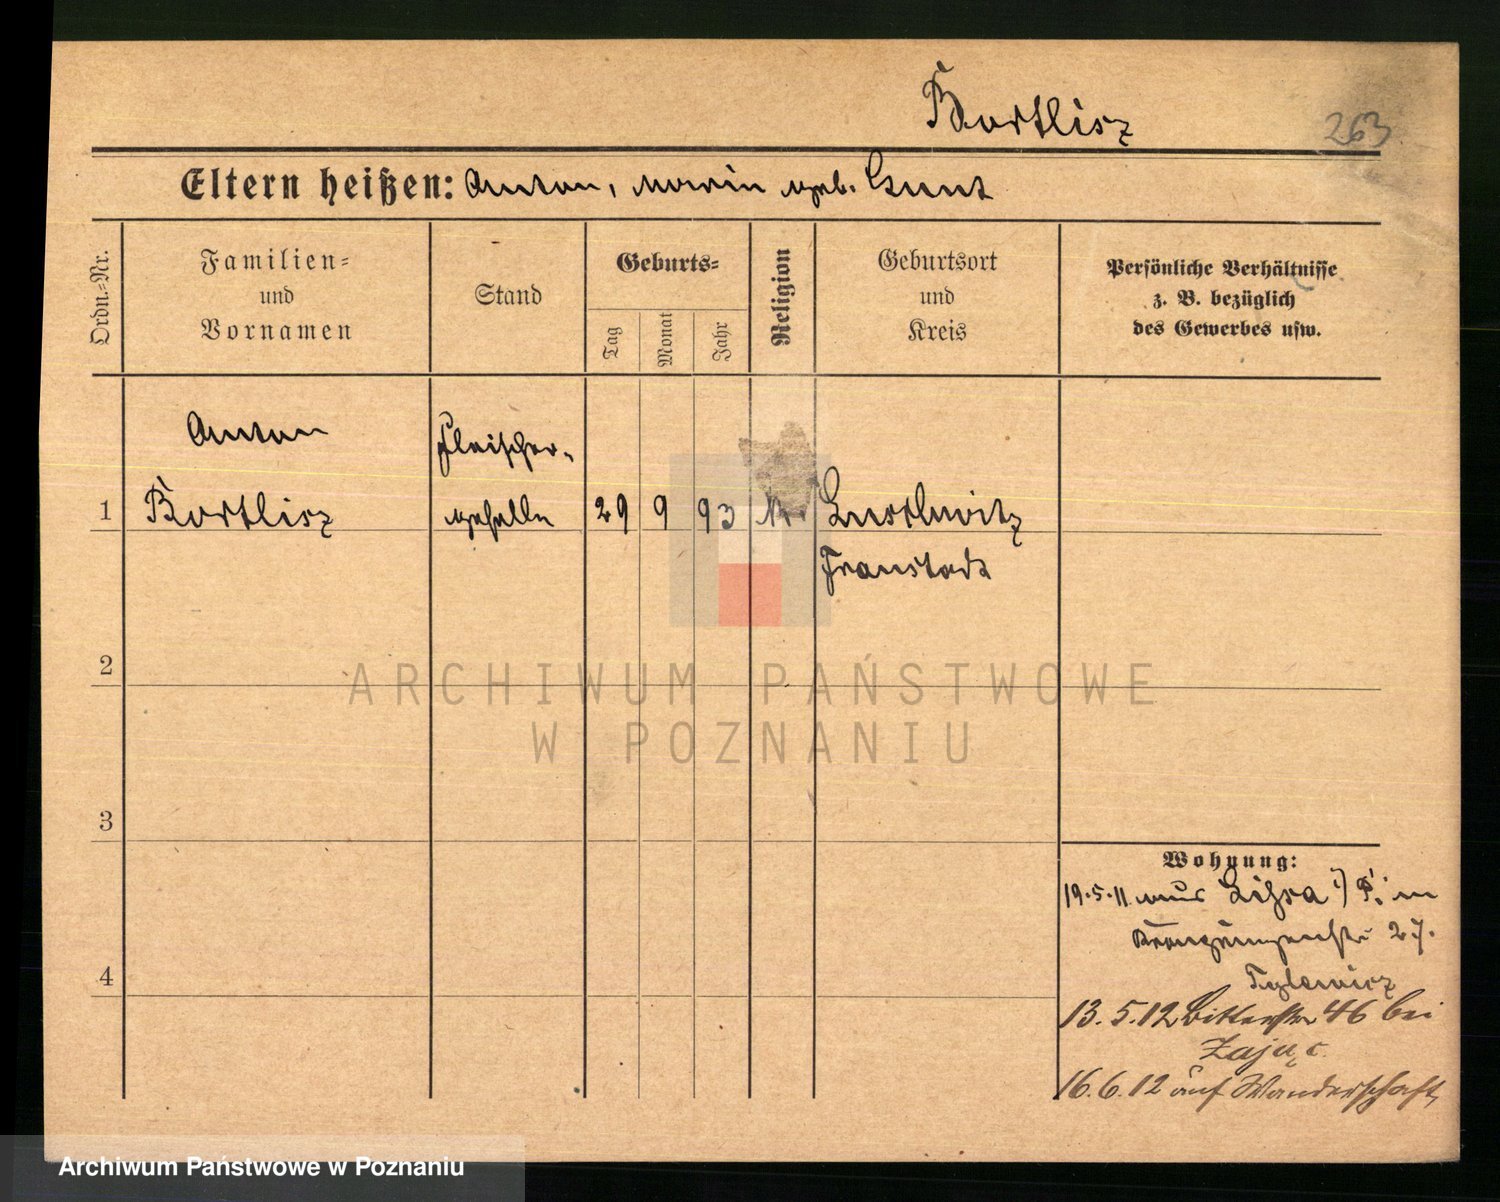 Bartlisz
263
Eltern heißen: Anton, Maria geb. Kunt
Ordn.-Nr.
Familien-
und
Vornamen
Stand
Geburts-
Tag
Monat
Jahr
Religion
Geburtsort
und
Kreis
Persönliche Verhältnisse
z. B. bezüglich
des Gewerbes usw.
Anton
Fleischer-
1 Bartlisz geselle 29 9 93 Luschwitz
Fraustadt
ARCHIWUM PAŃSTWOWE
W POZNANIU
2
3
4
Wohnung:
19.5.11 aus Lissa
27.
13.5.12 Bitterstr 46 bei
Zając
16.6.12 auf Wanderschaft
Archiwum Państwowe w Poznaniu